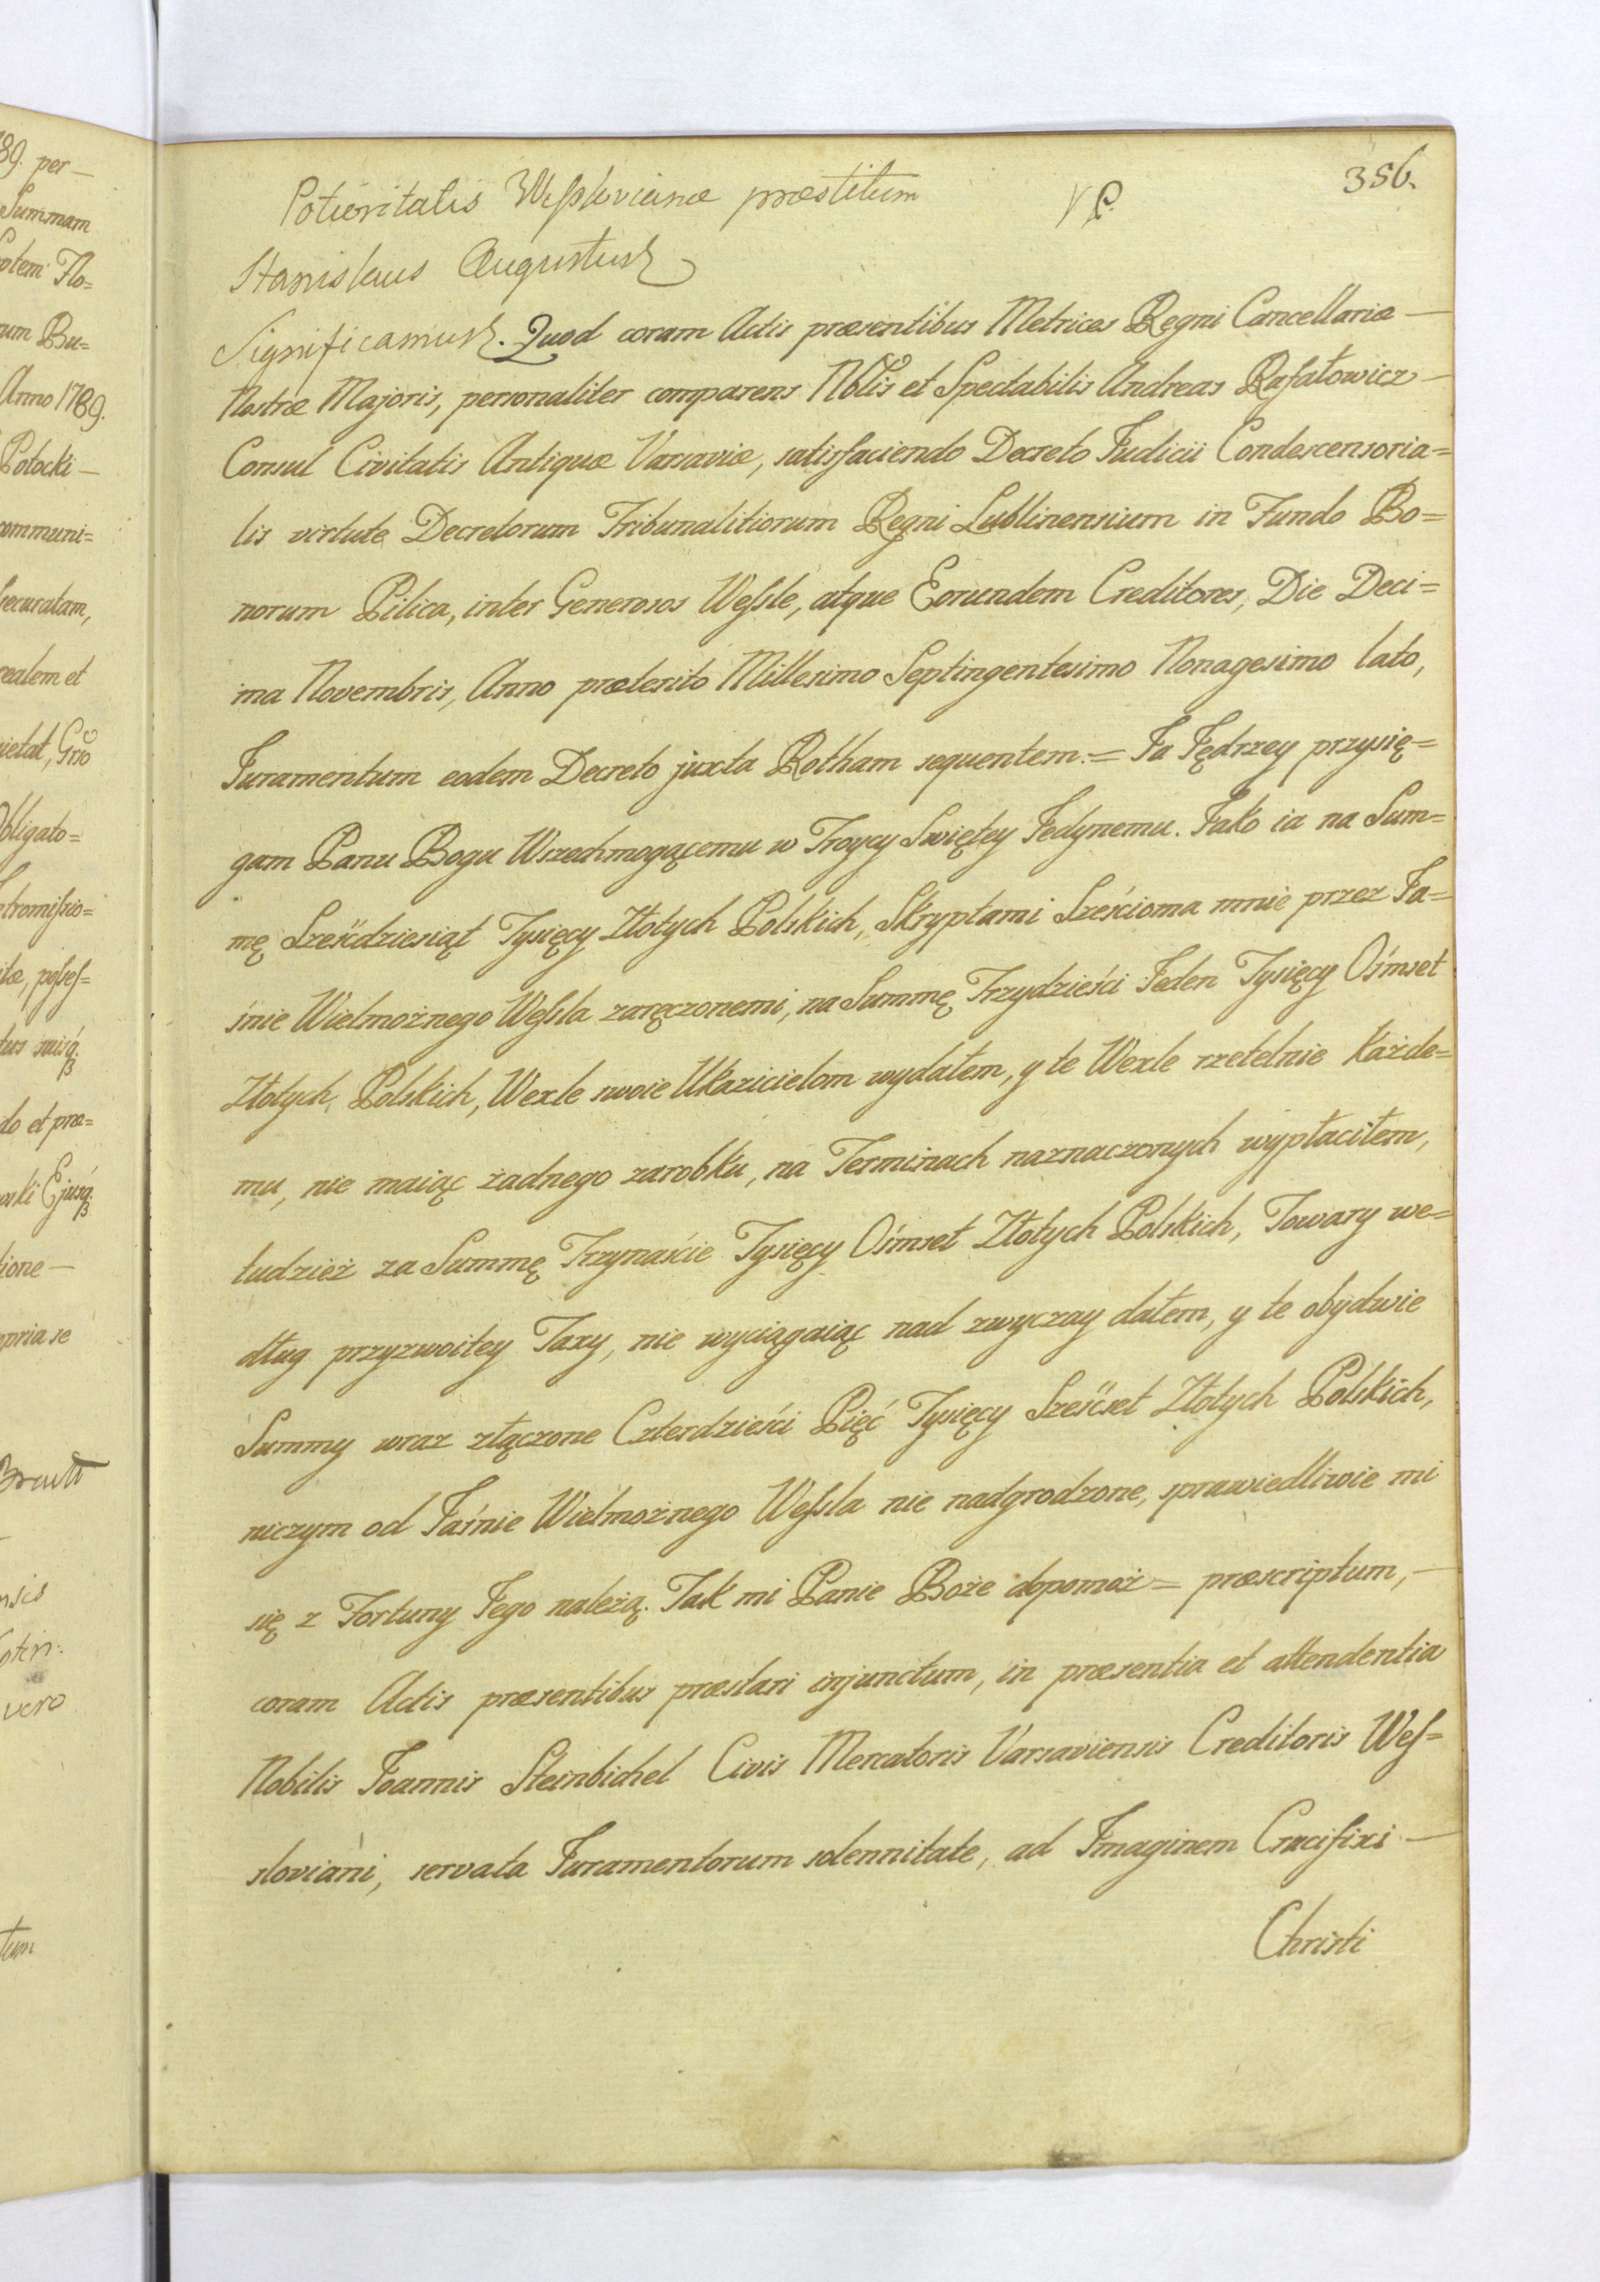 356.
Potioritatis Wesslovianæ præstitum
VP.
Stanislaus Augustus
Significamus. Quod coram Actis præsentibus Metrices Regni Cancellariæ —
Nostræ Majoris, personaliter comparens Nblis et Spectabilis Andreas Rafałowicz —
Consul Civitatis Antiquæ Varsaviæ, satisfaciendo Decreto Judicii Condescensoria=
lis virtute Decretorum Tribunalitiorum Regni Lublinensium in Fundo Bo=
norum Pilica, inter Generosos Weſsle, atque Eorundem Creditores, Die Deci=
ma Novembris, Anno præterito Millesimo Septingentesimo Nonagesimo lato,
Juramentum eodem Decreto juxta Rotham sequentem := Ja Jędrzey przysię=
gam Panu Bogu Wszechmogącemu w Troycy Swiętey Jedynemu. Jako ia na Sum=
mę Sześćdziesiąt Tysięcy Złotych Polskich, Skryptami Sześcioma mnie przez Ja=
śnie Wielmożnego Weſsla zaręczonemi, na Summę Trzydzieści Jeden Tysięcy Ośmset
Złotych Polskich, Wexle swoie Ukazicielom wydałem, y te Wexle rzetelnie każde=
mu, nie maiąc żadnego zarobku, na Terminach naznaczonych wypłaciłem,
tudzież za Summę Trzynaście Tysięcy Ośmset Złotych Polskich, Towary we=
dług przyzwoitey Taxy, nie wyciągaiąc nad zwyczay dałem, y te obydwie
Summy wraz złączone Czterdzieści Pięć Tysięcy Sześćset Złotych Polskich,
niczym od Jaśnie Wielmożnego Weſsla nie nadgrodzone, sprawiedliwie mi
się z Fortuny Jego należą. Tak mi Panie Boże dopomoż = præscriptum, —
coram Actis præsentibus præstari injunctum, in præsentia et attendentia
Nobilis Joannis Steinbichel Civis Mercatoris Varsaviensis Creditoris Weſ=
sloviani, servata Juramentorum solennitate, ad Imaginem Crucifixi —
Christi